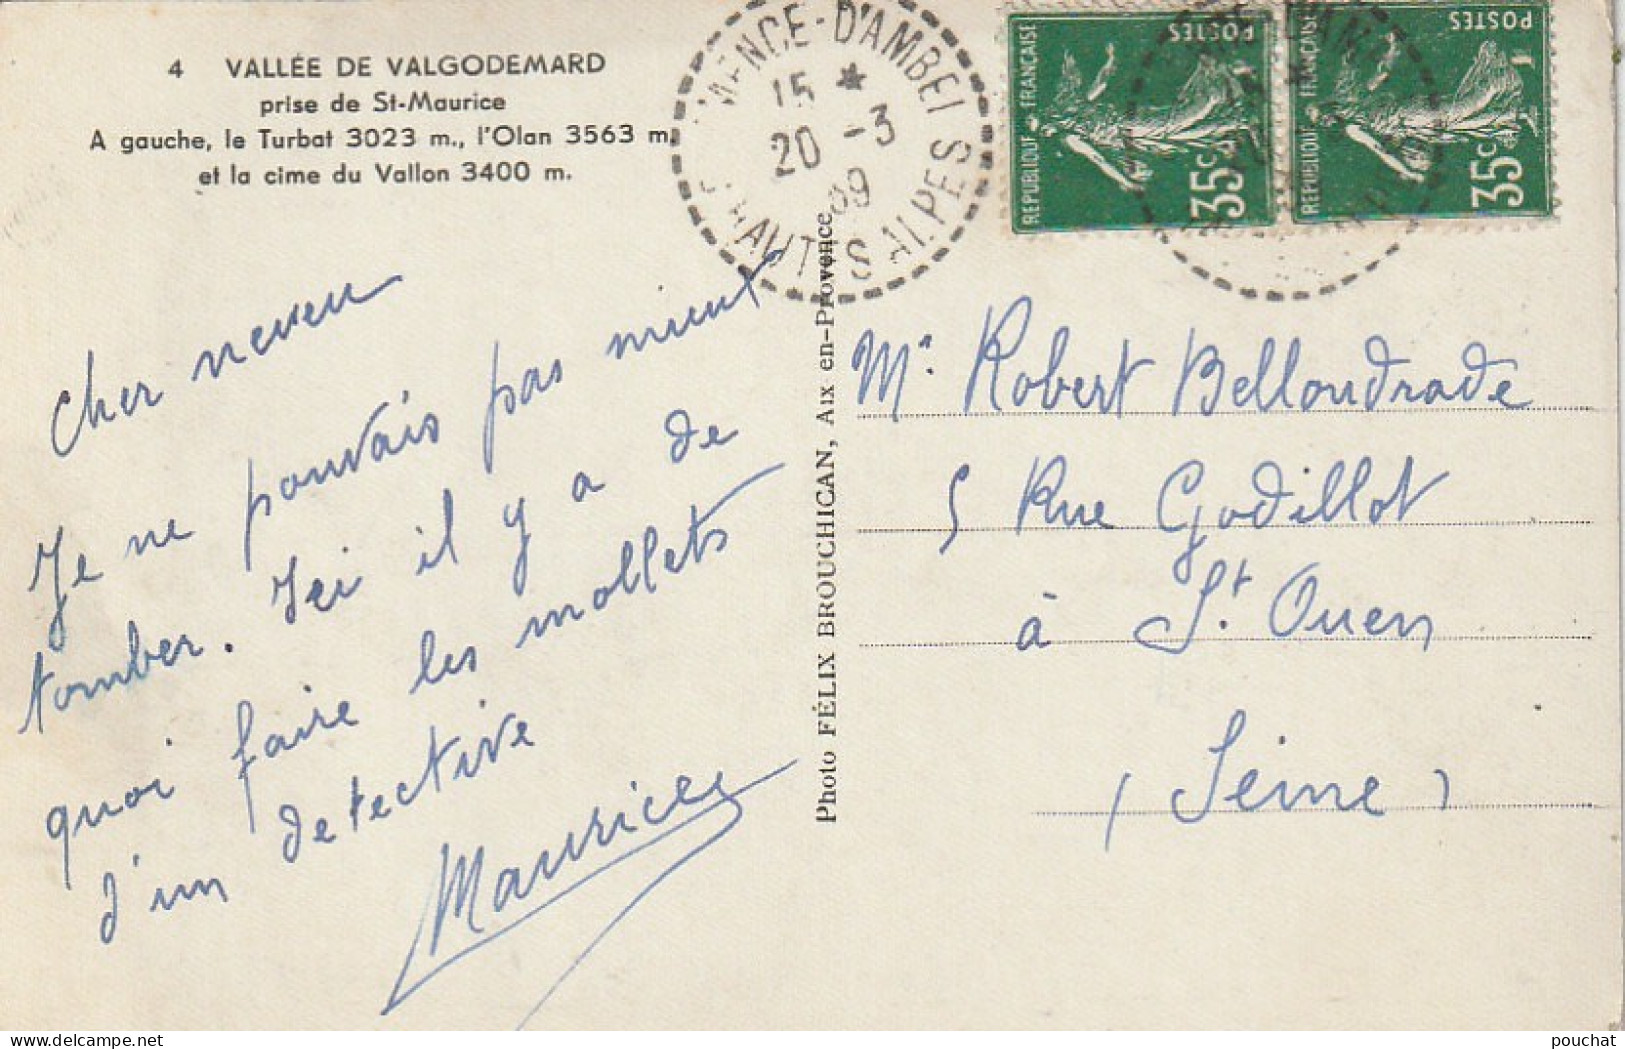 4 VALLÉE DE VALGODEMARD
prise de St-Maurice
A gauche, le Turbat 3023 m., l'Olan 3563 m.
et la cime du Vallon 3400 m.
D'AMBEL
15 *
20 -3
39
HAUTES ALPES
POSTES
REPUBLIQUE FRANÇAISE
35c
POSTES
REPUBLIQUE FRANÇAISE
35c
Cher neveu
Je ne pouvais pas mieux
tomber. Ici il y a de
quoi faire les mollets
d'un detective
Maurice
Photo FÉLIX BROUCHICAN, Aix en-Provence
Mr Robert Belloudrade
5 Rue Godillot
à St. Ouen
(Seine)
pouchat